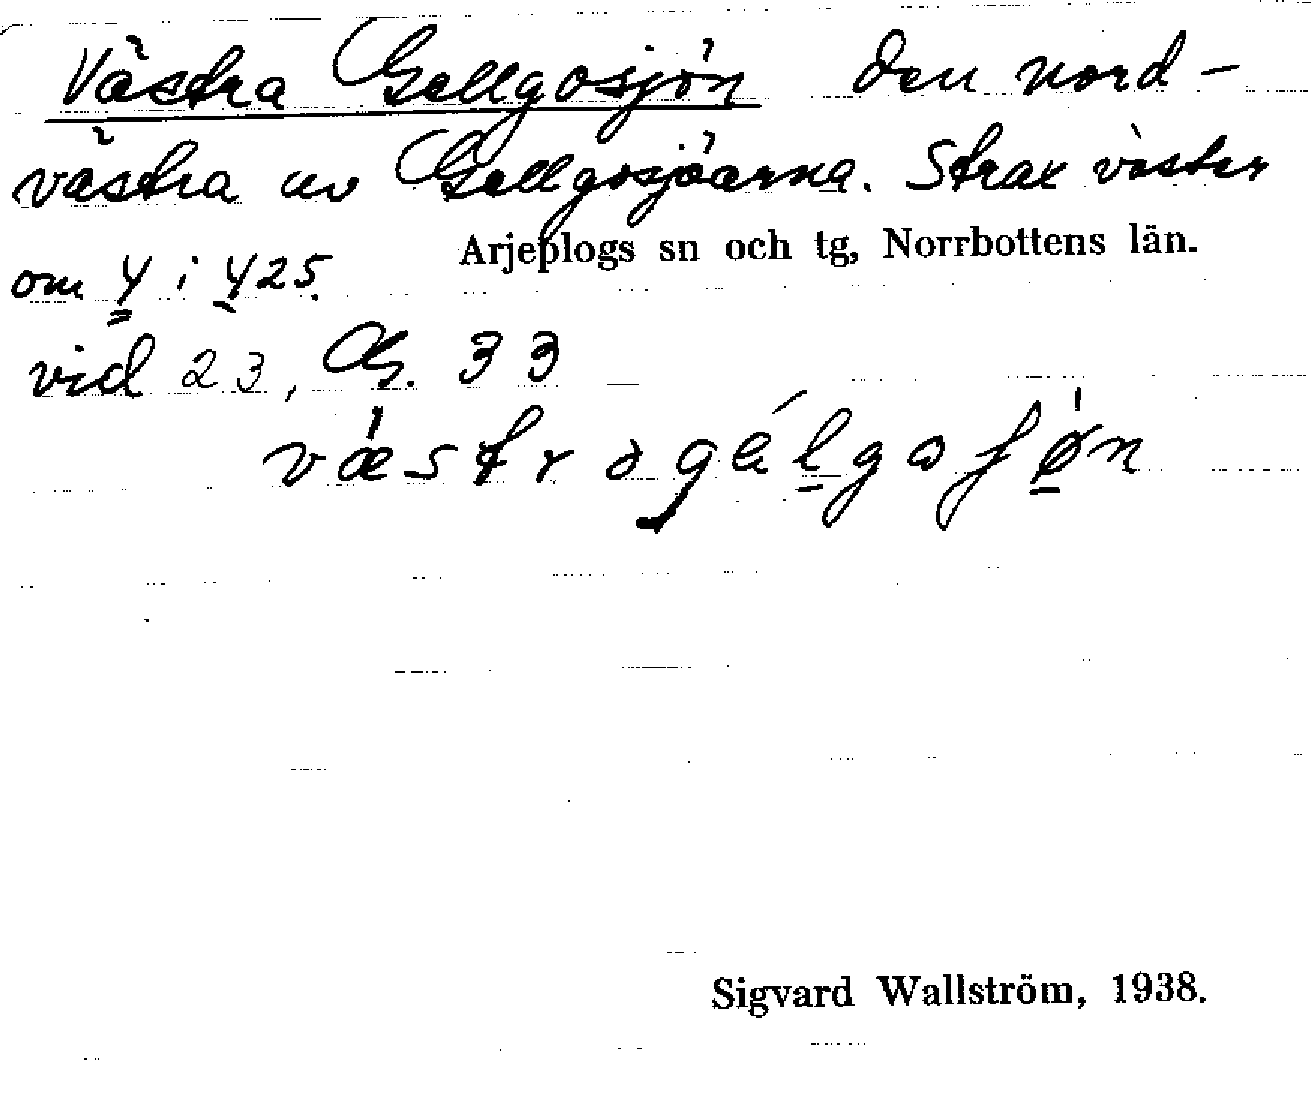 Västra Gellgosjön den nord-
västra av Gellgosjöarna. Strax väster
Arjeplogs sn och tg, Norrbottens län.
om 4 i 425.
vid 23, 33
Sigvard Wallström, 1938.